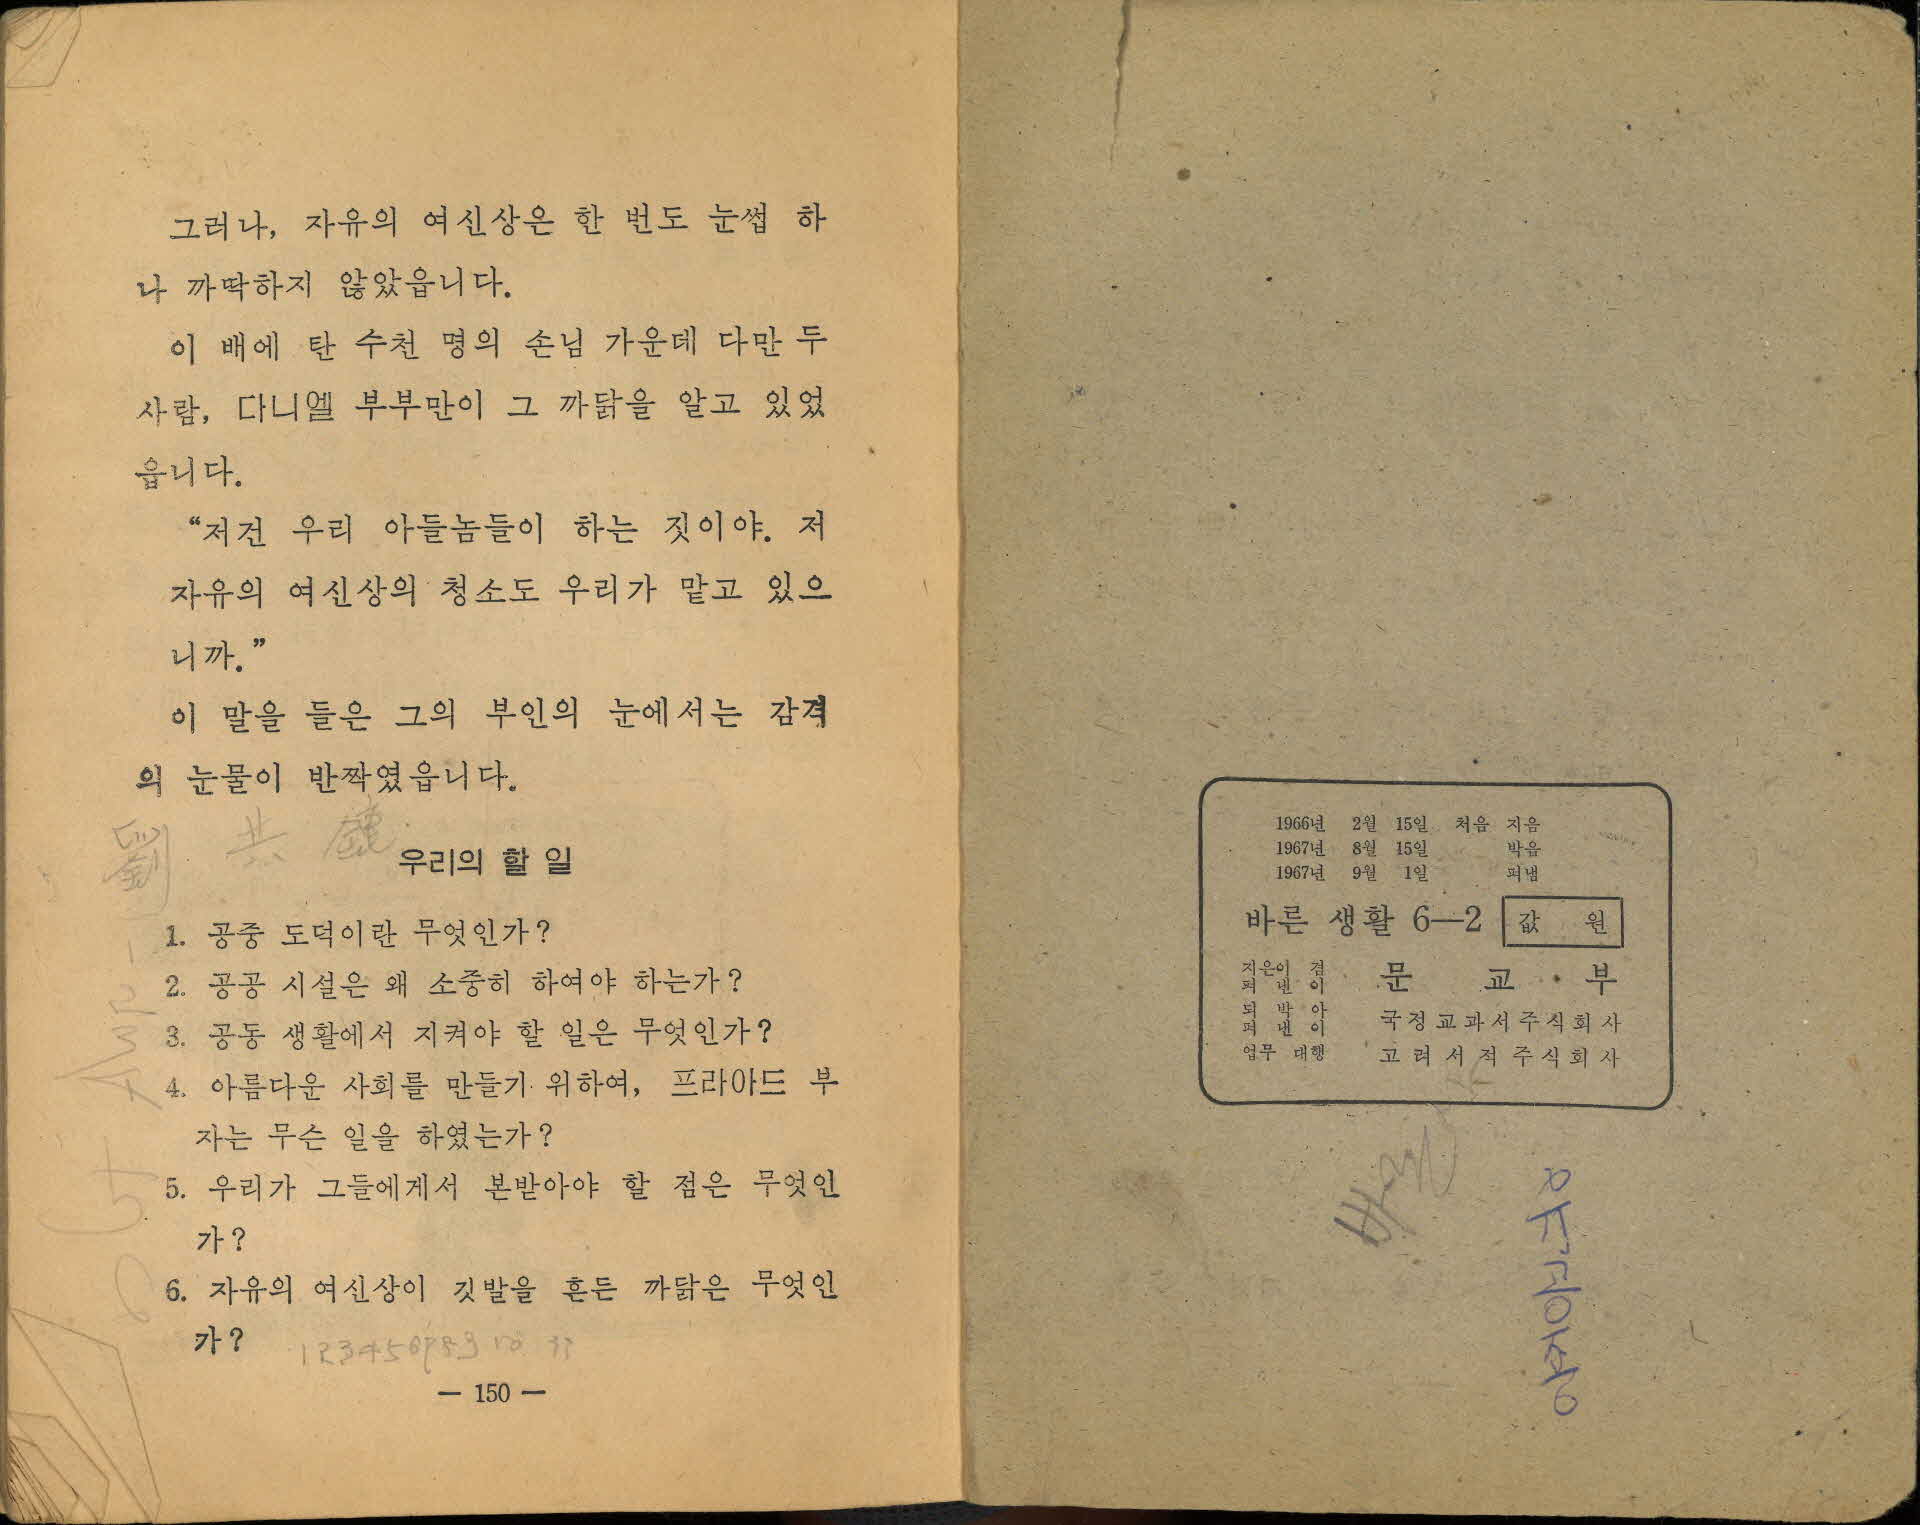 그러나, 자유의 여신상은 한 번도 눈썹 하
나 까딱하지 않았읍니다.
이 배에 탄 수천 명의 손님 가운데 다만 두
사람, 다니엘 부부만이 그 까닭을 알고 있었
읍니다.
“저건 우리 아들놈들이 하는 짓이야. 저
자유의 여신상의 청소도 우리가 맡고 있으
니까.”
이 말을 들은 그의 부인의 눈에서는 감격
의 눈물이 반짝였읍니다.
우리의 할 일
1. 공중 도덕이란 무엇인가?
2. 공공 시설은 왜 소중히 하여야 하는가?
3. 공동 생활에서 지켜야 할 일은 무엇인가?
4. 아름다운 사회를 만들기 위하여, 프라아드 부
자는 무슨 일을 하였는가?
5. 우리가 그들에게서 본받아야 할 점은 무엇인
가?
6. 자유의 여신상이 깃발을 흔든 까닭은 무엇인
가?
— 150 —
1966년 2월 15일 처음 지음
1967년 8월 15일 박음
1967년 9월 1일 펴냄
바른 생활 6—2 값 원
지은이 겸
펴낸이 문교부
되박아
펴낸이 국정교과서주식회사
업무 대행 고려서적주식회사